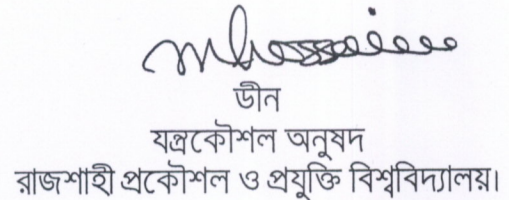 ডীন
যন্ত্রকৌশল অনুষদ
রাজশাহী প্রকৌশল ও প্রযুক্তি বিশ্ববিদ্যালয়।